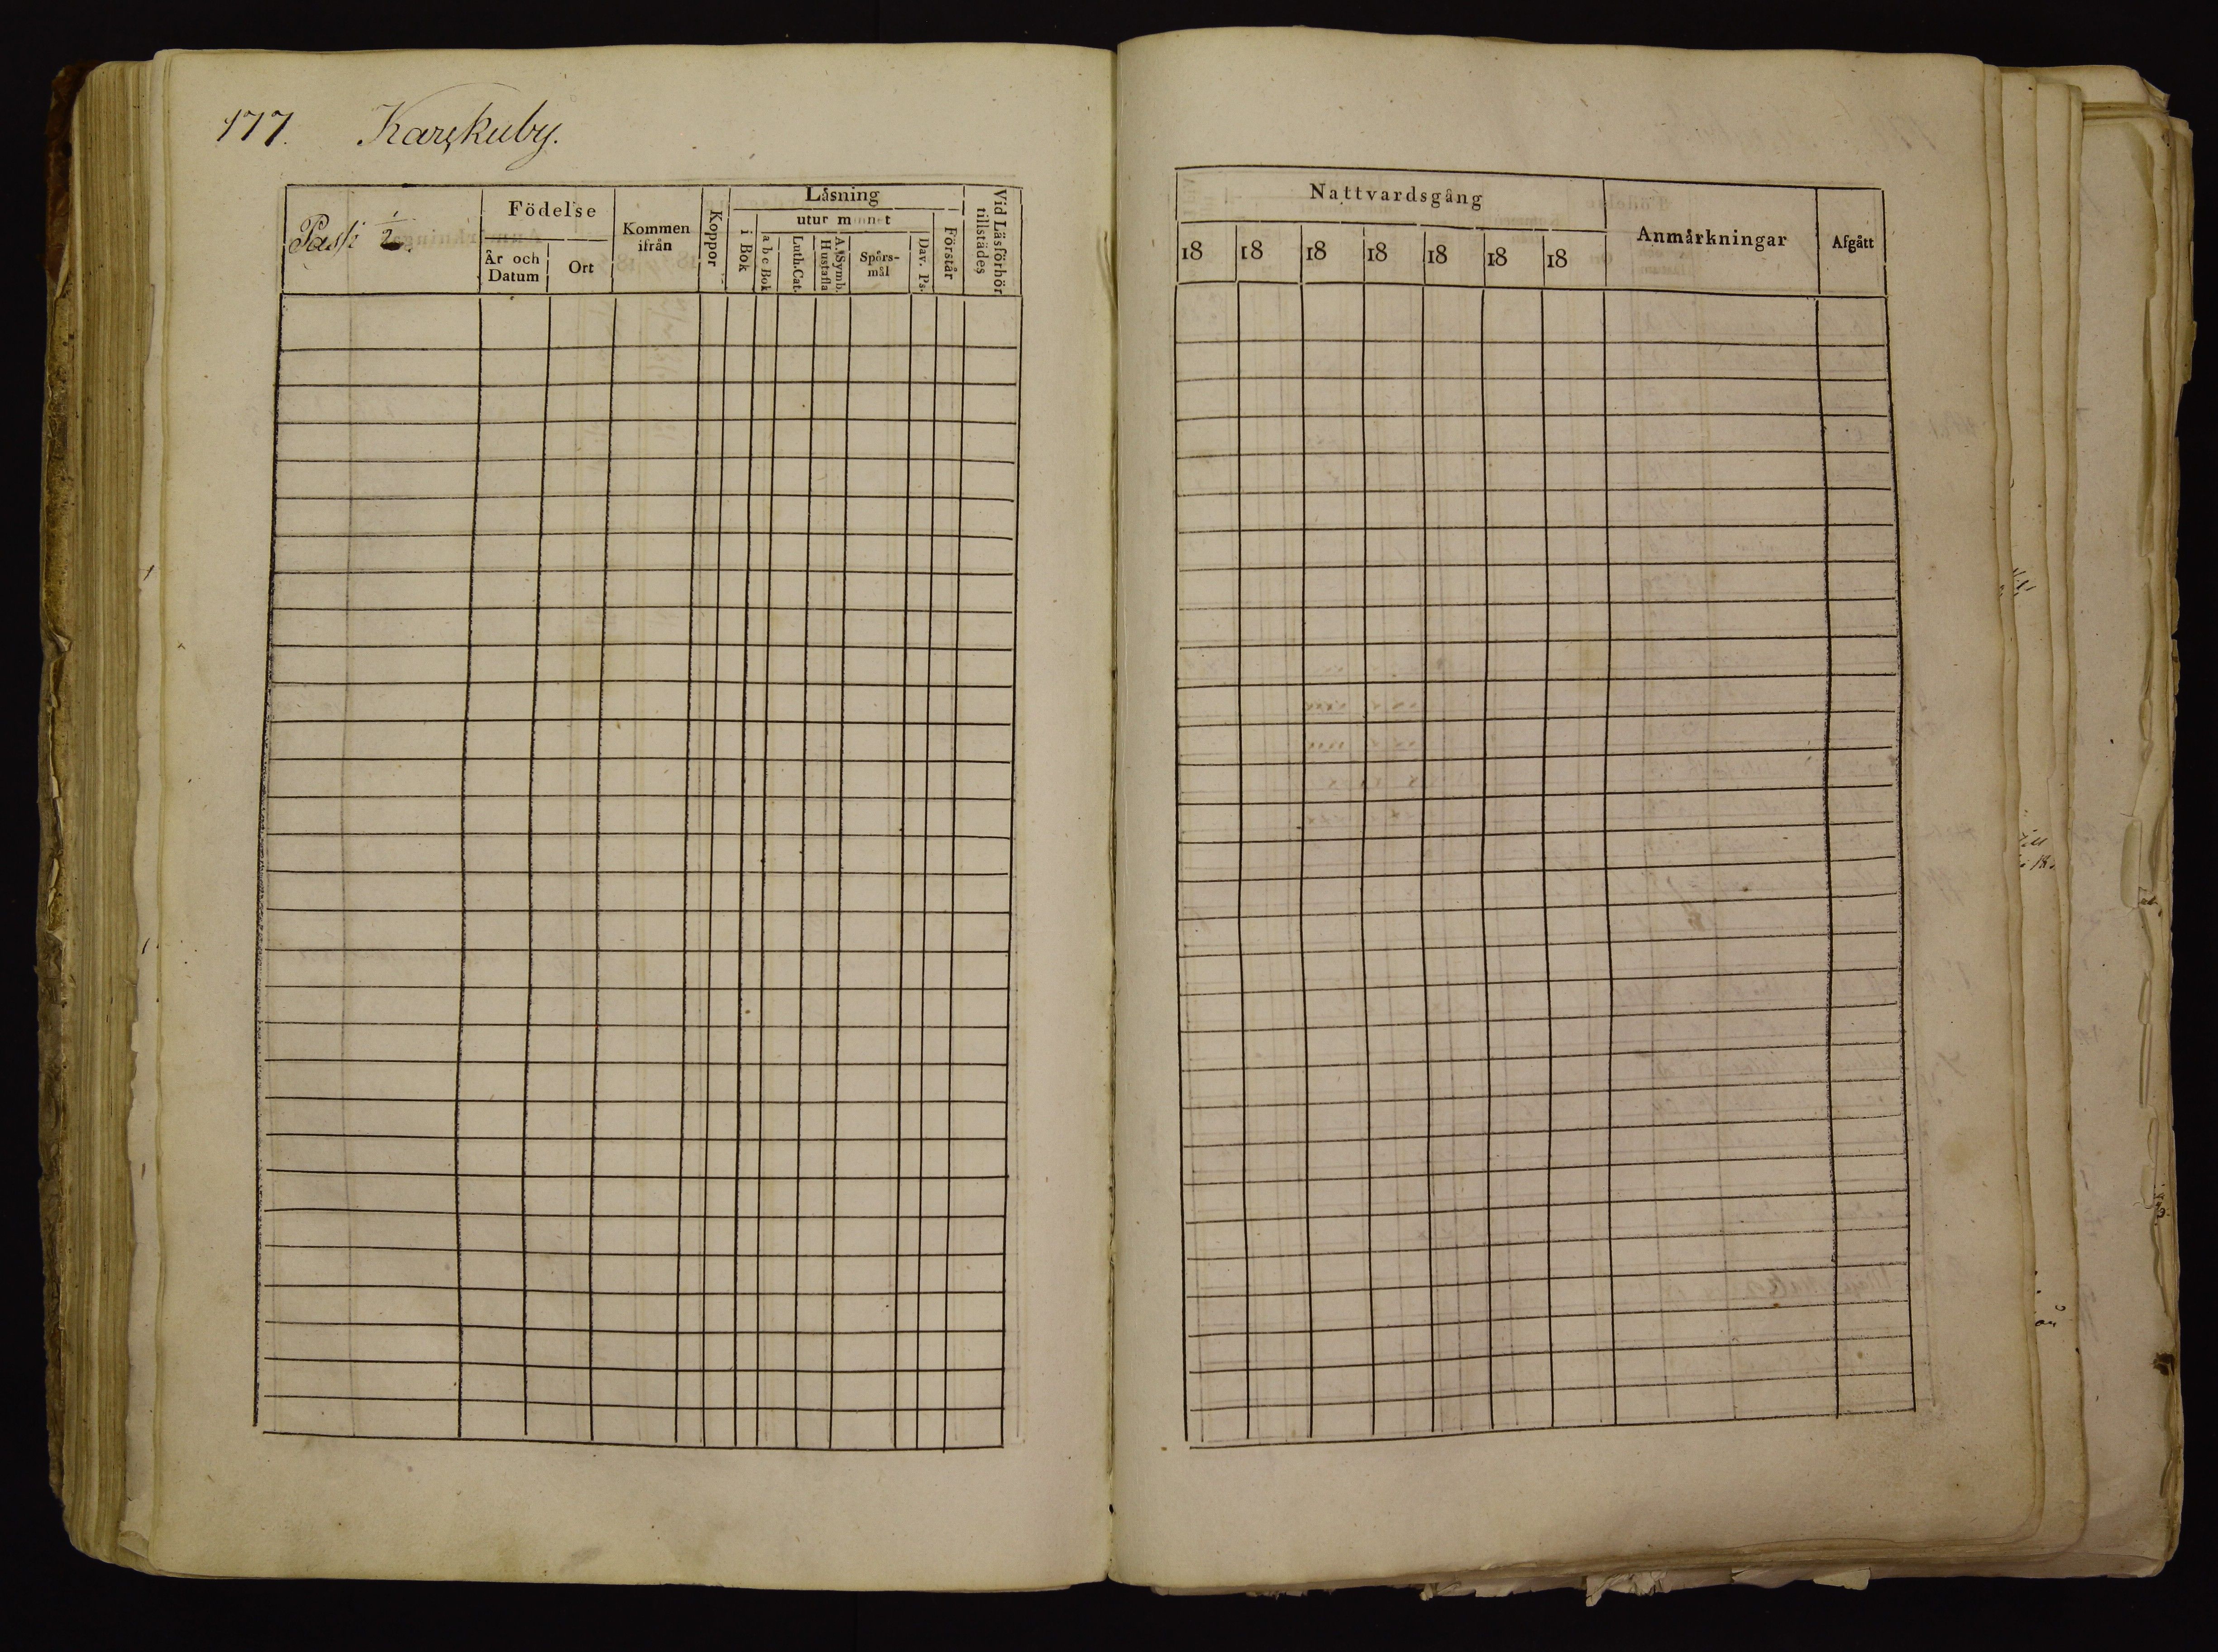 177. Karskuby.
Passi 1/2.
Födelse
År och Datum
Ort
Kommen ifrån
Koppor
Låsning
i Bok
utur minnet
a b c Bok
Luth. Cat.
A. Symb. Hustafla
Spörs-mål
Dav. Ps.
Förstår
Vid Läsförhör tillstådes
Nattvardsgång
18 18 18 18 18 18 18
Anmärkningar
Afgått